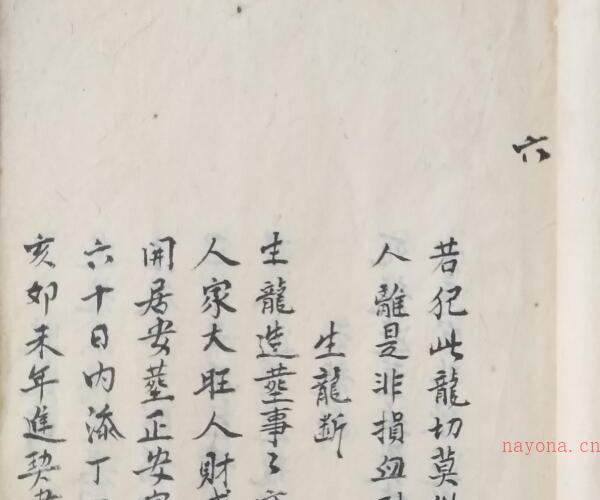 六
若犯此龍切莫
人離是非損血財
生龍斷
生龍造塟事〻
人家大旺人財
開居安塟正安
六十日内添丁
亥卯未年進契
nayona.cn